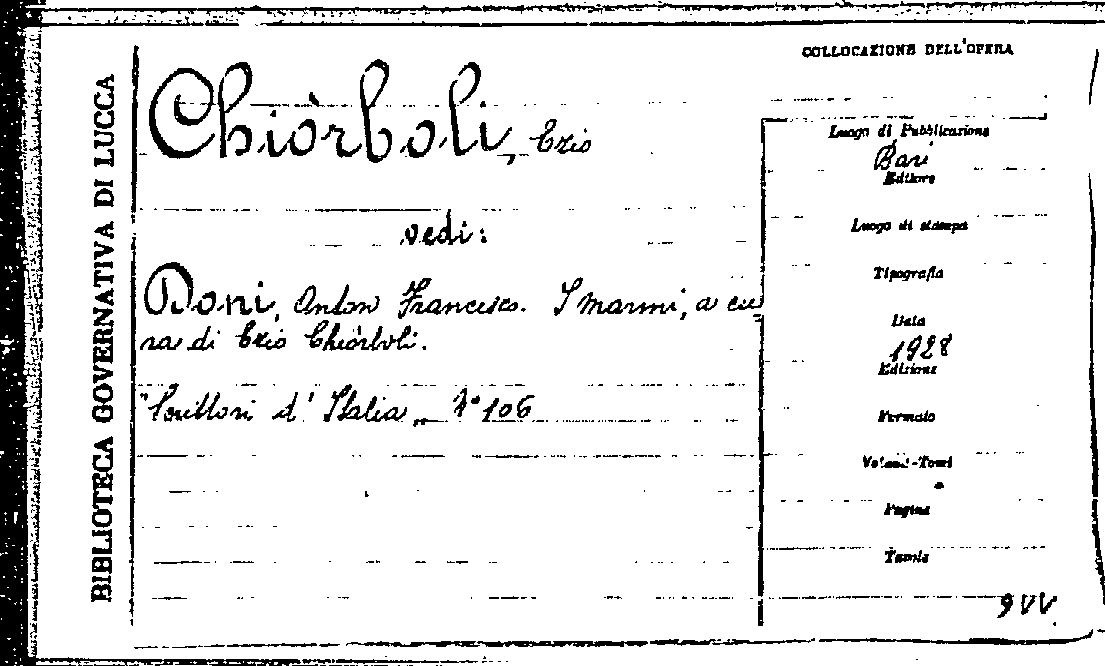 BIBLIOTECA GOVERNATIVA DI LUCCA
Chiòrboli, Ezio
vedi:
Doni, Anton Francesco. I marmi, a cu
ra di Ezio Chiòrboli.
"Scrittori d'Italia„ N° 106
COLLOCAZIONE DELL'OPERA
Luogo di Pubblicazione
Bari
Editore
Luogo di stampa
Tipografia
Data
1928
Edizione
Formato
Volumi-Tomi
Pagine
Tavole
9 VV.